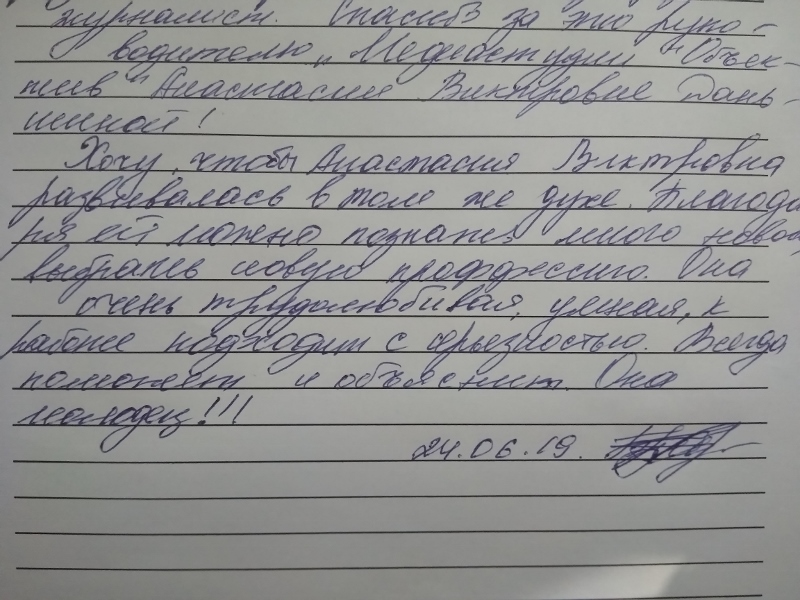 журналист. Спасибо за это руко-
водителю „Медиастудии "Объек-
тив" Анастасии Викторовне Дань-
шиной!
Хочу, чтобы Анастасия Викторовна
развивалась в том же духе. Благода
ря ей можно познать много нового,
выбрать новую проффессию. Она
очень трудолюбивая, умная, к
работе подходит с серьезностью. Всегда
поможет и объяснит. Она
молодец!!!
24.06.19.